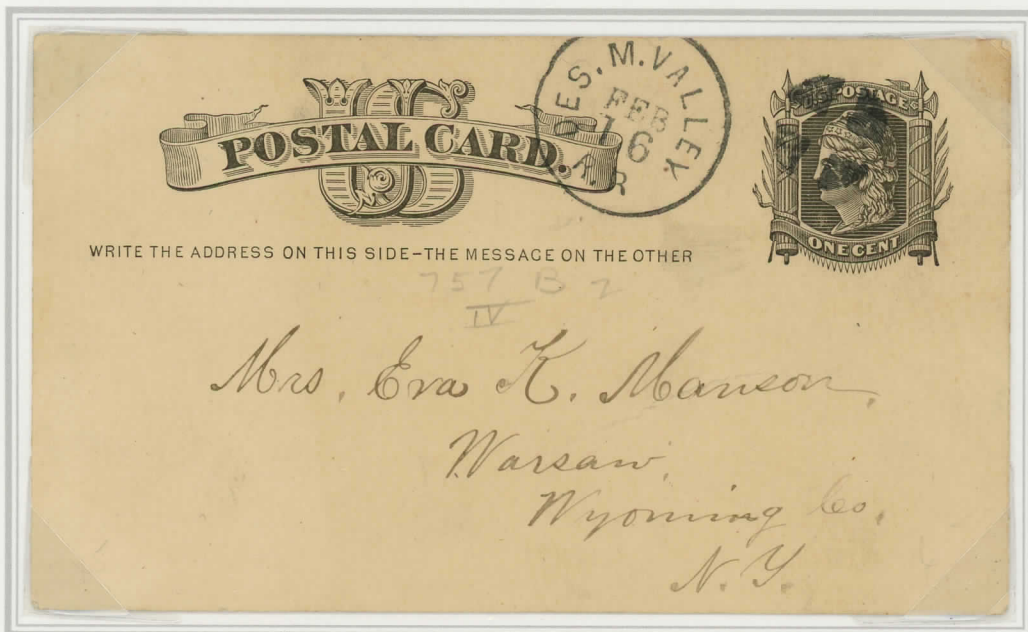 US
POSTAL CARD.
DES. M. VALLEY.
FEB
16
A. R
U.S. POSTAGE
ONE CENT
WRITE THE ADDRESS ON THIS SIDE-THE MESSAGE ON THE OTHER
757 B 2
IV
Mrs. Eva K. Manson,
Warsaw,
Wyoming Co,
N. Y.